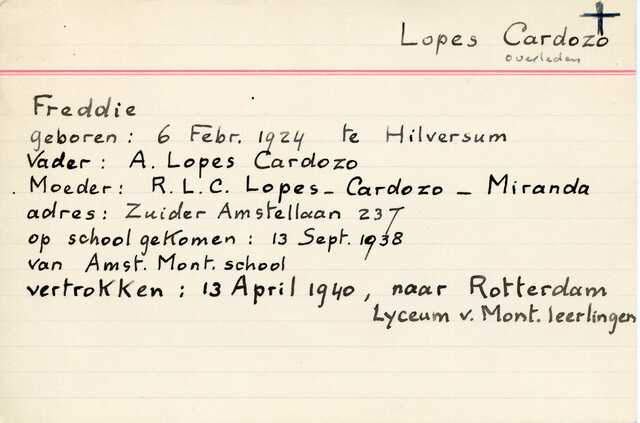 Lopes Cardozo
overleden
Freddie
geboren: 6 Febr. 1924 te Hilversum
Vader: A. Lopes Cardozo
Moeder: R.L.C. Lopes-Cardozo - Miranda
adres: Zuider Amstellaan 237
op school gekomen: 13 Sept. 1938
van Amst. Mont. school
vertrokken: 13 April 1940, naar Rotterdam
Lyceum v. Mont. leerlingen